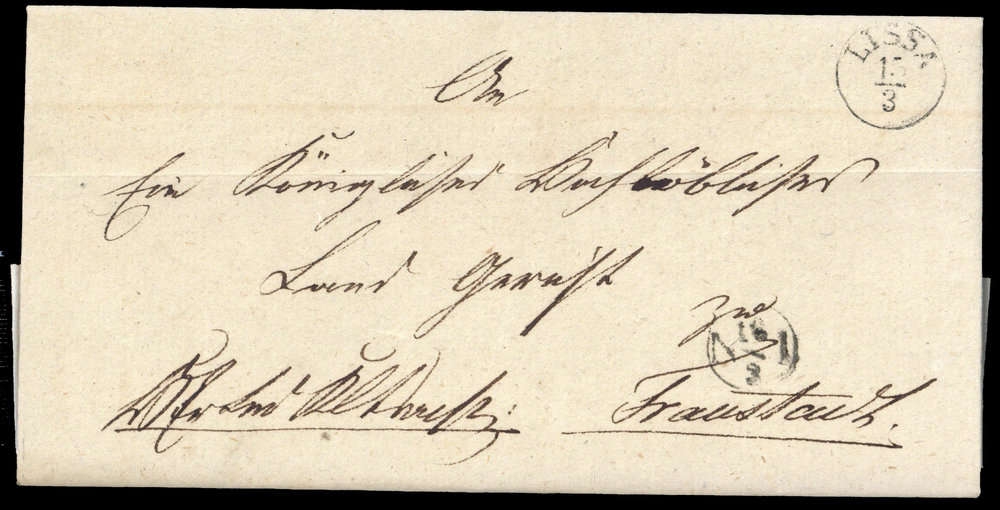 LISSA
15
3
An
Ein Königliches Wohllöbliches
Land Gericht
zu
16
N 1
3
Fraustadt.